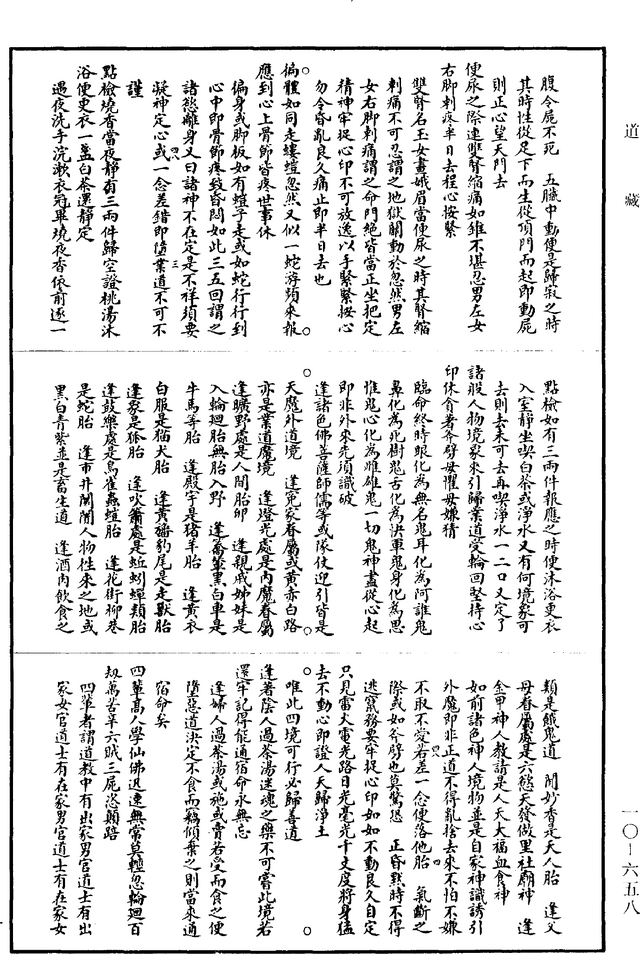 道 藏
腹令屍不死 五臟中動便是歸寂之時
其時性從足下而生從頂門而起即動屍
則正心望天門去
便尿之際連雙腎縮痛如錐不堪忍男左女
右脚刺疼半日去程心按緊
雙腎名玉女畫娥眉當便尿之時其腎縮
刺痛不可忍謂之地獄關動於忽然男左
女右脚刺痛謂之命門絕皆當正坐把定
精神牢捉心印不可放逸以手緊緊按心
勿令昏亂良久痛止即半日去也
徧體如同走縷螘忽然又似一蛇游須來報
應到心上骨節皆疼世事休
徧身或脚板如有螘子走或如蛇行行到
心中即骨節疼致昏悶如此三五回謂之
諸慾離身又曰諸神不在定是不祥須要
凝神定心或一念差錯即墮業道不可不
謹
點檢燒香當夜靜有三兩件歸空證桃湯沐
浴便更衣一盞白茶還靜定
遇夜洗手浣漱衣冠畢燒夜香依前逐一
點檢如有三兩件報應之時便沐浴更衣
入室靜坐喫白茶或淨水又有何境象可
去則去未可去再喫淨水一二口又定了
諸般人物境象來引歸業道受輪回堅持心
印休貪著斧劈母懼母嫌猜
臨命終時眼化為無名鬼耳化為阿誰鬼
鼻化為死樹鬼舌化為決軍鬼身化為思
惟鬼心化為雌雄鬼一切鬼神盡從心起
即非外來先須識破
逢諸色佛菩薩師儒等或隊仗迎引皆是
天魔外道境 逢冤家眷屬或黃赤白路
亦是業道魔境 逢燈光處是內魔眷屬
逢曠野處是人間胎卵 逢親戚姊妹是
入輪廻胎無胎入野 逢喬輦黑白車是
牛馬等胎 逢殿宇是猪羊胎 逢黃衣
白服是猫犬胎 逢黃旛豹尾是走獸胎
逢聚是狐胎 逢吹簫處是蚯蚓蟬類胎
逢鼓樂處是鳥雀蟲螘胎 逢花街柳巷
是蛇胎 逢市井鬧閙人物往來之地或
黑白青紫並是畜生道 逢酒肉飲食之
類是餓鬼道 聞妙香是天人胎 逢父
母眷屬處是六慾天發做里社廟神 逢
金甲神人教請是人天大福血食神
如前諸色神人境物並是自家神識誘引
外魔即非正道不得亂捨去來不怕不嫌
不取不愛若差一念便落他胎 氣斷之
際或如斧劈也莫驚恐 正昏黙時不得
逃竄務要牢捉心印如如不動良久自定
只見雷火電光路日光毫光千丈度將身猛
去不動心即證人天歸淨土
唯此四境可行必歸善道
逢著陰人過茶湯迷魂之藥不可嘗此境若
還牢記得能通宿命永無忘
逢婦人過茶湯或䄃或賣若受而食之便
墮惡道決定不食而竊傾棄之則當來通
宿命矣
四輩高人學仙佛迟速無常莫輕忽輪廻百
刼萬苦辛六賊三屍恣顛路
四輩者謂道教中有出家男官道士有出
家女官道士有在家男官道士有在家女
一〇—六五八